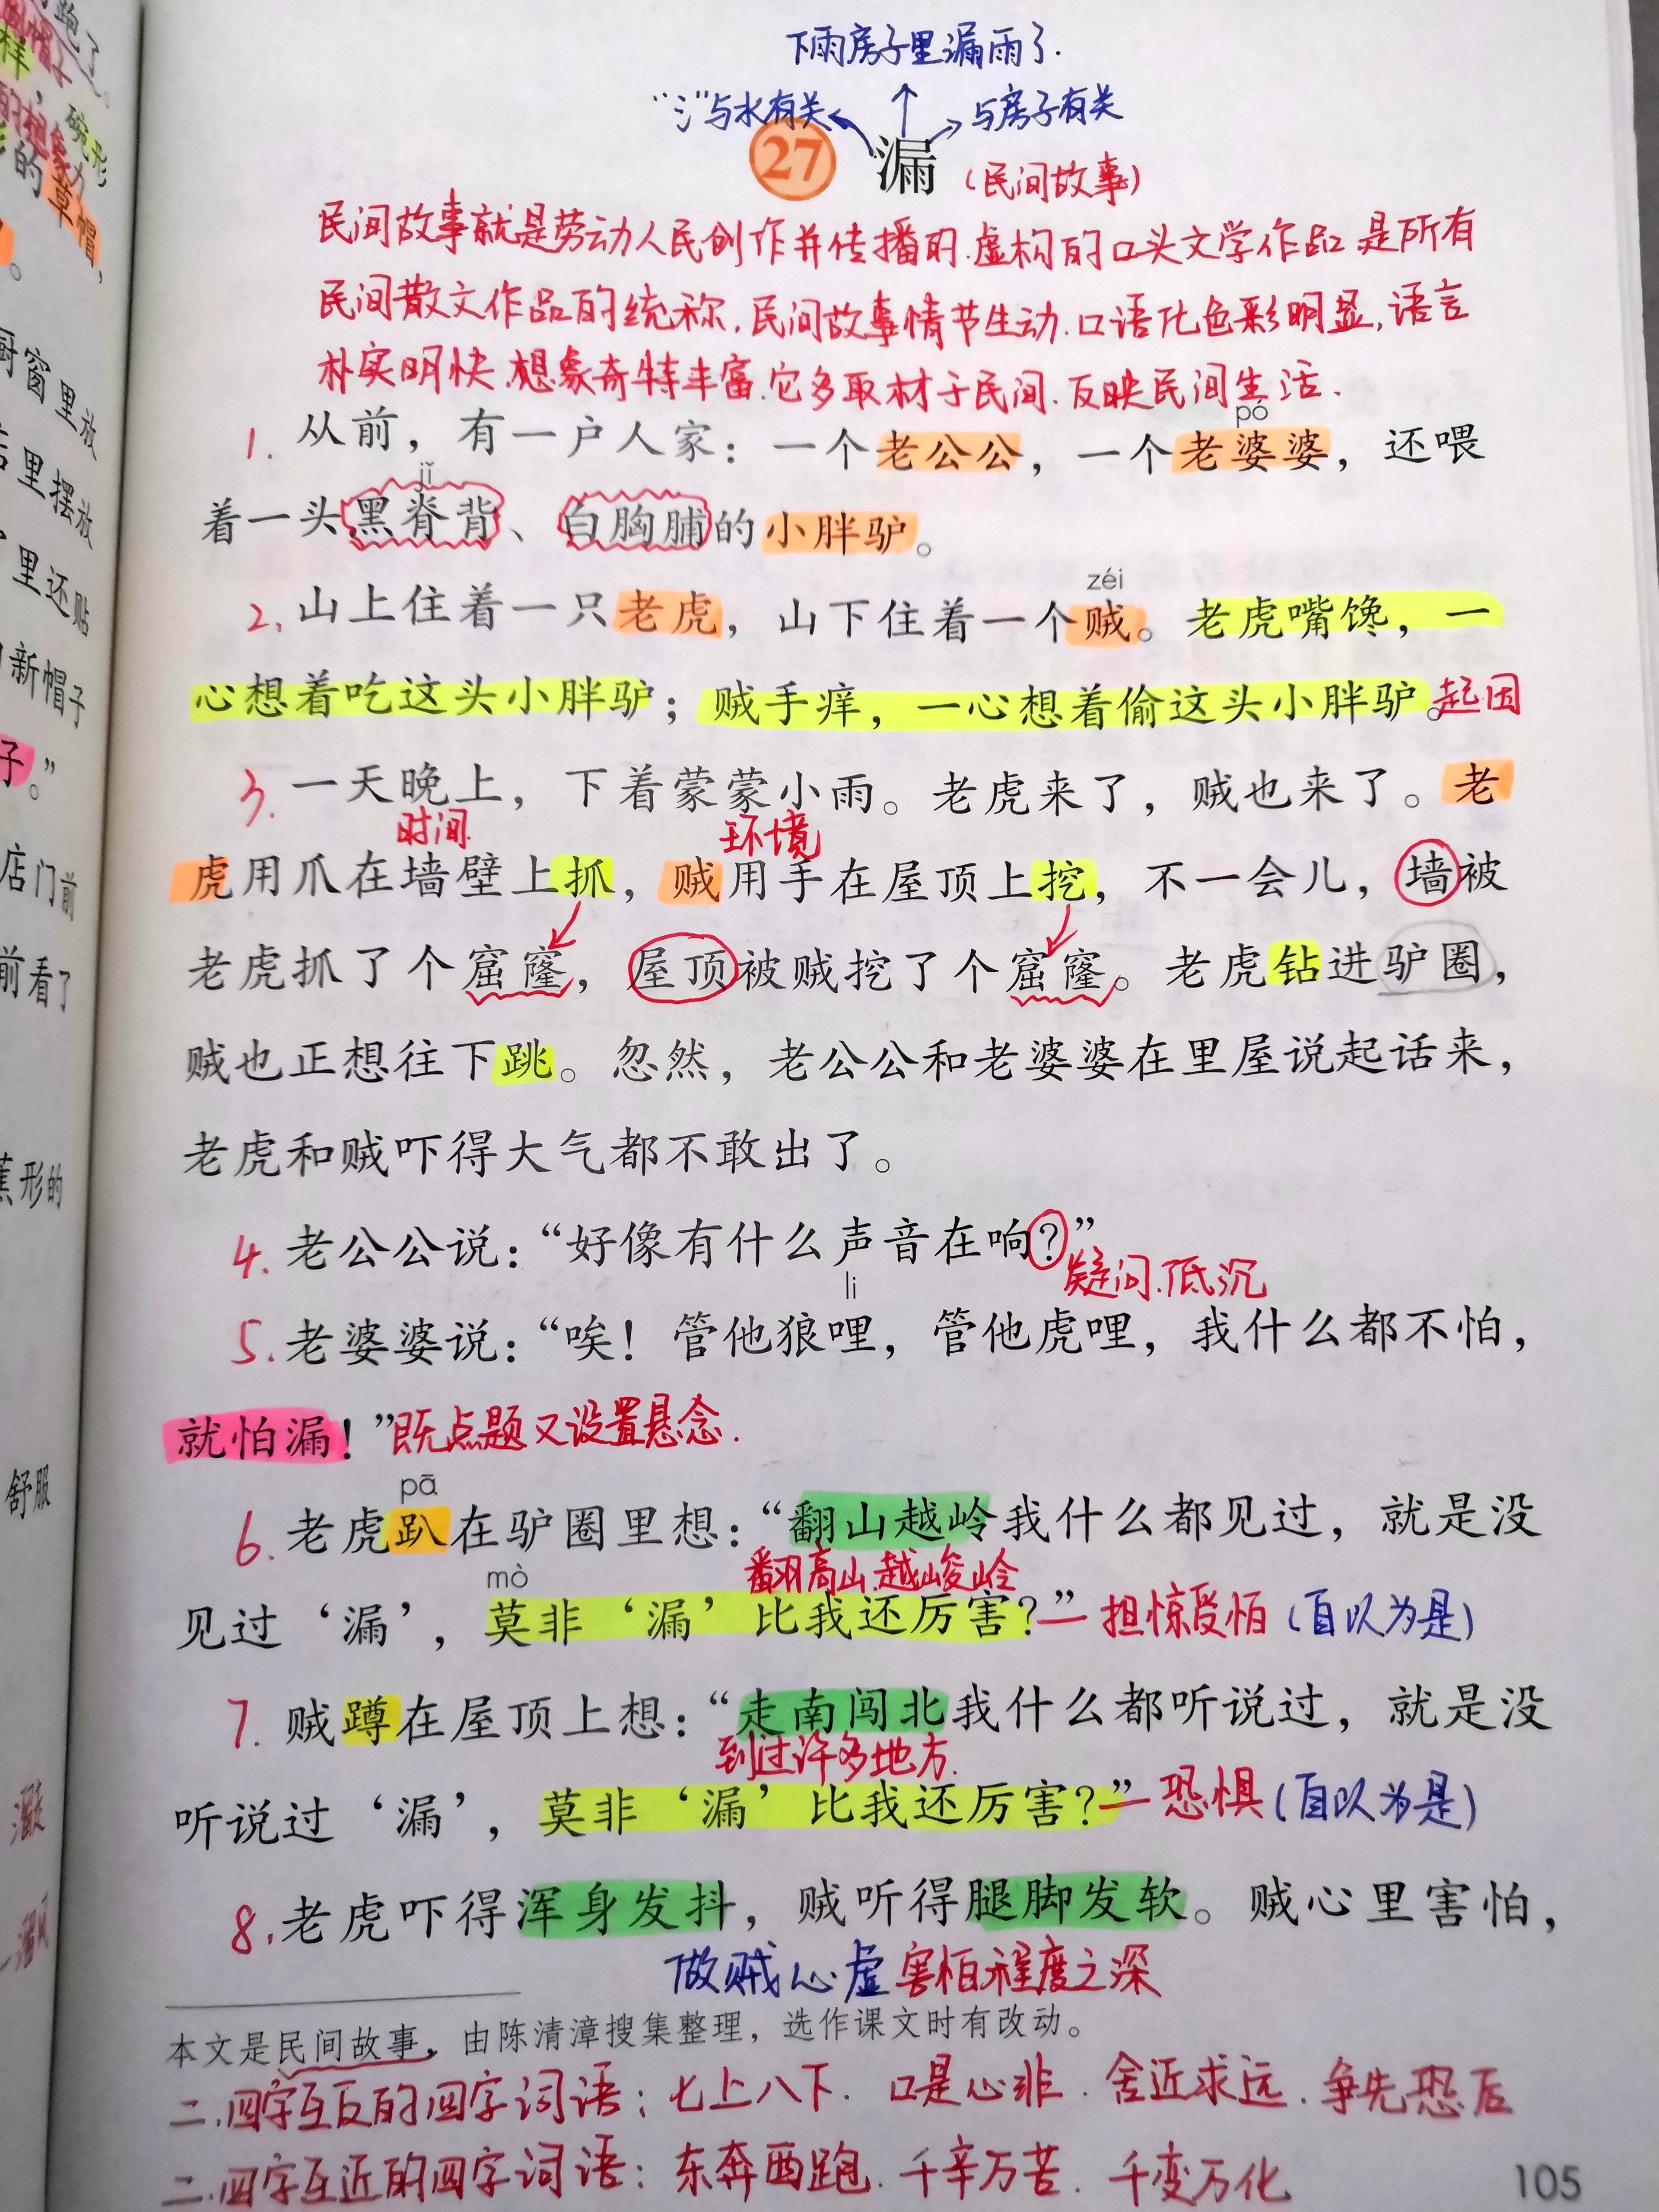 下雨房子里漏雨了.
“氵”与水有关
与房子有关
27 漏 (民间故事)
民间故事就是劳动人民创作并传播的.虚构的口头文学作品.是所有
民间散文作品的统称.民间故事情节生动.口语化色彩明显,语言
朴实明快.想象奇特丰富.它多取材于民间.反映民间生活.
pó
1. 从前，有一户人家：一个老公公，一个老婆婆，还喂
jǐ
着一头黑脊背、白胸脯的小胖驴。
zéi
2. 山上住着一只老虎，山下住着一个贼。老虎嘴馋，一
心想着吃这头小胖驴；贼手痒，一心想着偷这头小胖驴。起因
3. 一天晚上，下着蒙蒙小雨。老虎来了，贼也来了。老
时间 环境
虎用爪在墙壁上抓，贼用手在屋顶上挖，不一会儿，墙被
老虎抓了个窟窿，屋顶被贼挖了个窟窿。老虎钻进驴圈，
贼也正想往下跳。忽然，老公公和老婆婆在里屋说起话来，
老虎和贼吓得大气都不敢出了。
4. 老公公说：“好像有什么声音在响？”
疑问.低沉
li
5. 老婆婆说：“唉！管他狼哩，管他虎哩，我什么都不怕，
就怕漏！”既点题又设置悬念.
pā
6. 老虎趴在驴圈里想：“翻山越岭我什么都见过，就是没
翻高山.越峻岭
mò
见过‘漏’，莫非‘漏’比我还厉害？”— 担惊受怕(自以为是)
7. 贼蹲在屋顶上想：“走南闯北我什么都听说过，就是没
到过许多地方.
听说过‘漏’，莫非‘漏’比我还厉害？”— 恐惧(自以为是)
8. 老虎吓得浑身发抖，贼听得腿脚发软。贼心里害怕，
做贼心虚 害怕程度之深
本文是民间故事，由陈清漳搜集整理，选作课文时有改动。
二.四字互反的四字词语：七上八下. 口是心非. 舍近求远. 争先恐后
二.四字互近的四字词语：东奔西跑. 千辛万苦. 千变万化
105
厨窗里放
里摆放
里还贴
新帽子
子。”
店门前
前看了
蕉形的
舒服